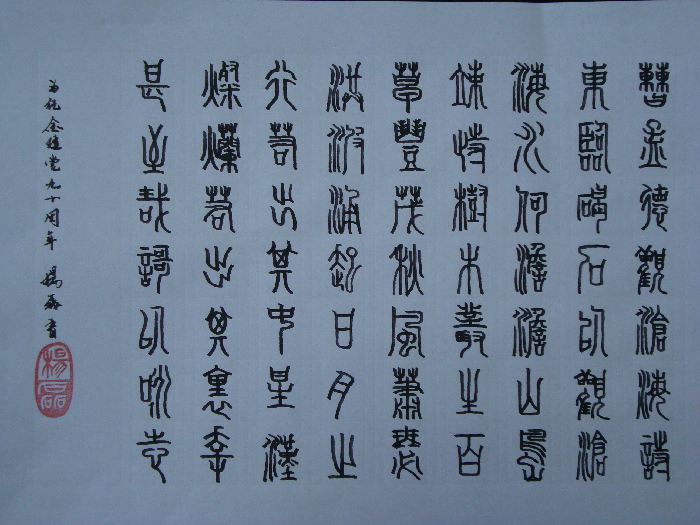 曹孟德觀滄海詩
東臨碣石以觀滄
海水何澹澹山島
竦峙樹木叢生百
草豐茂秋風蕭瑟
洪波涌起日月之
行若出其中星漢
燦爛若出其裏幸
甚至哉歌以詠志
为纪念建党九十周年 楊磊書
楊磊